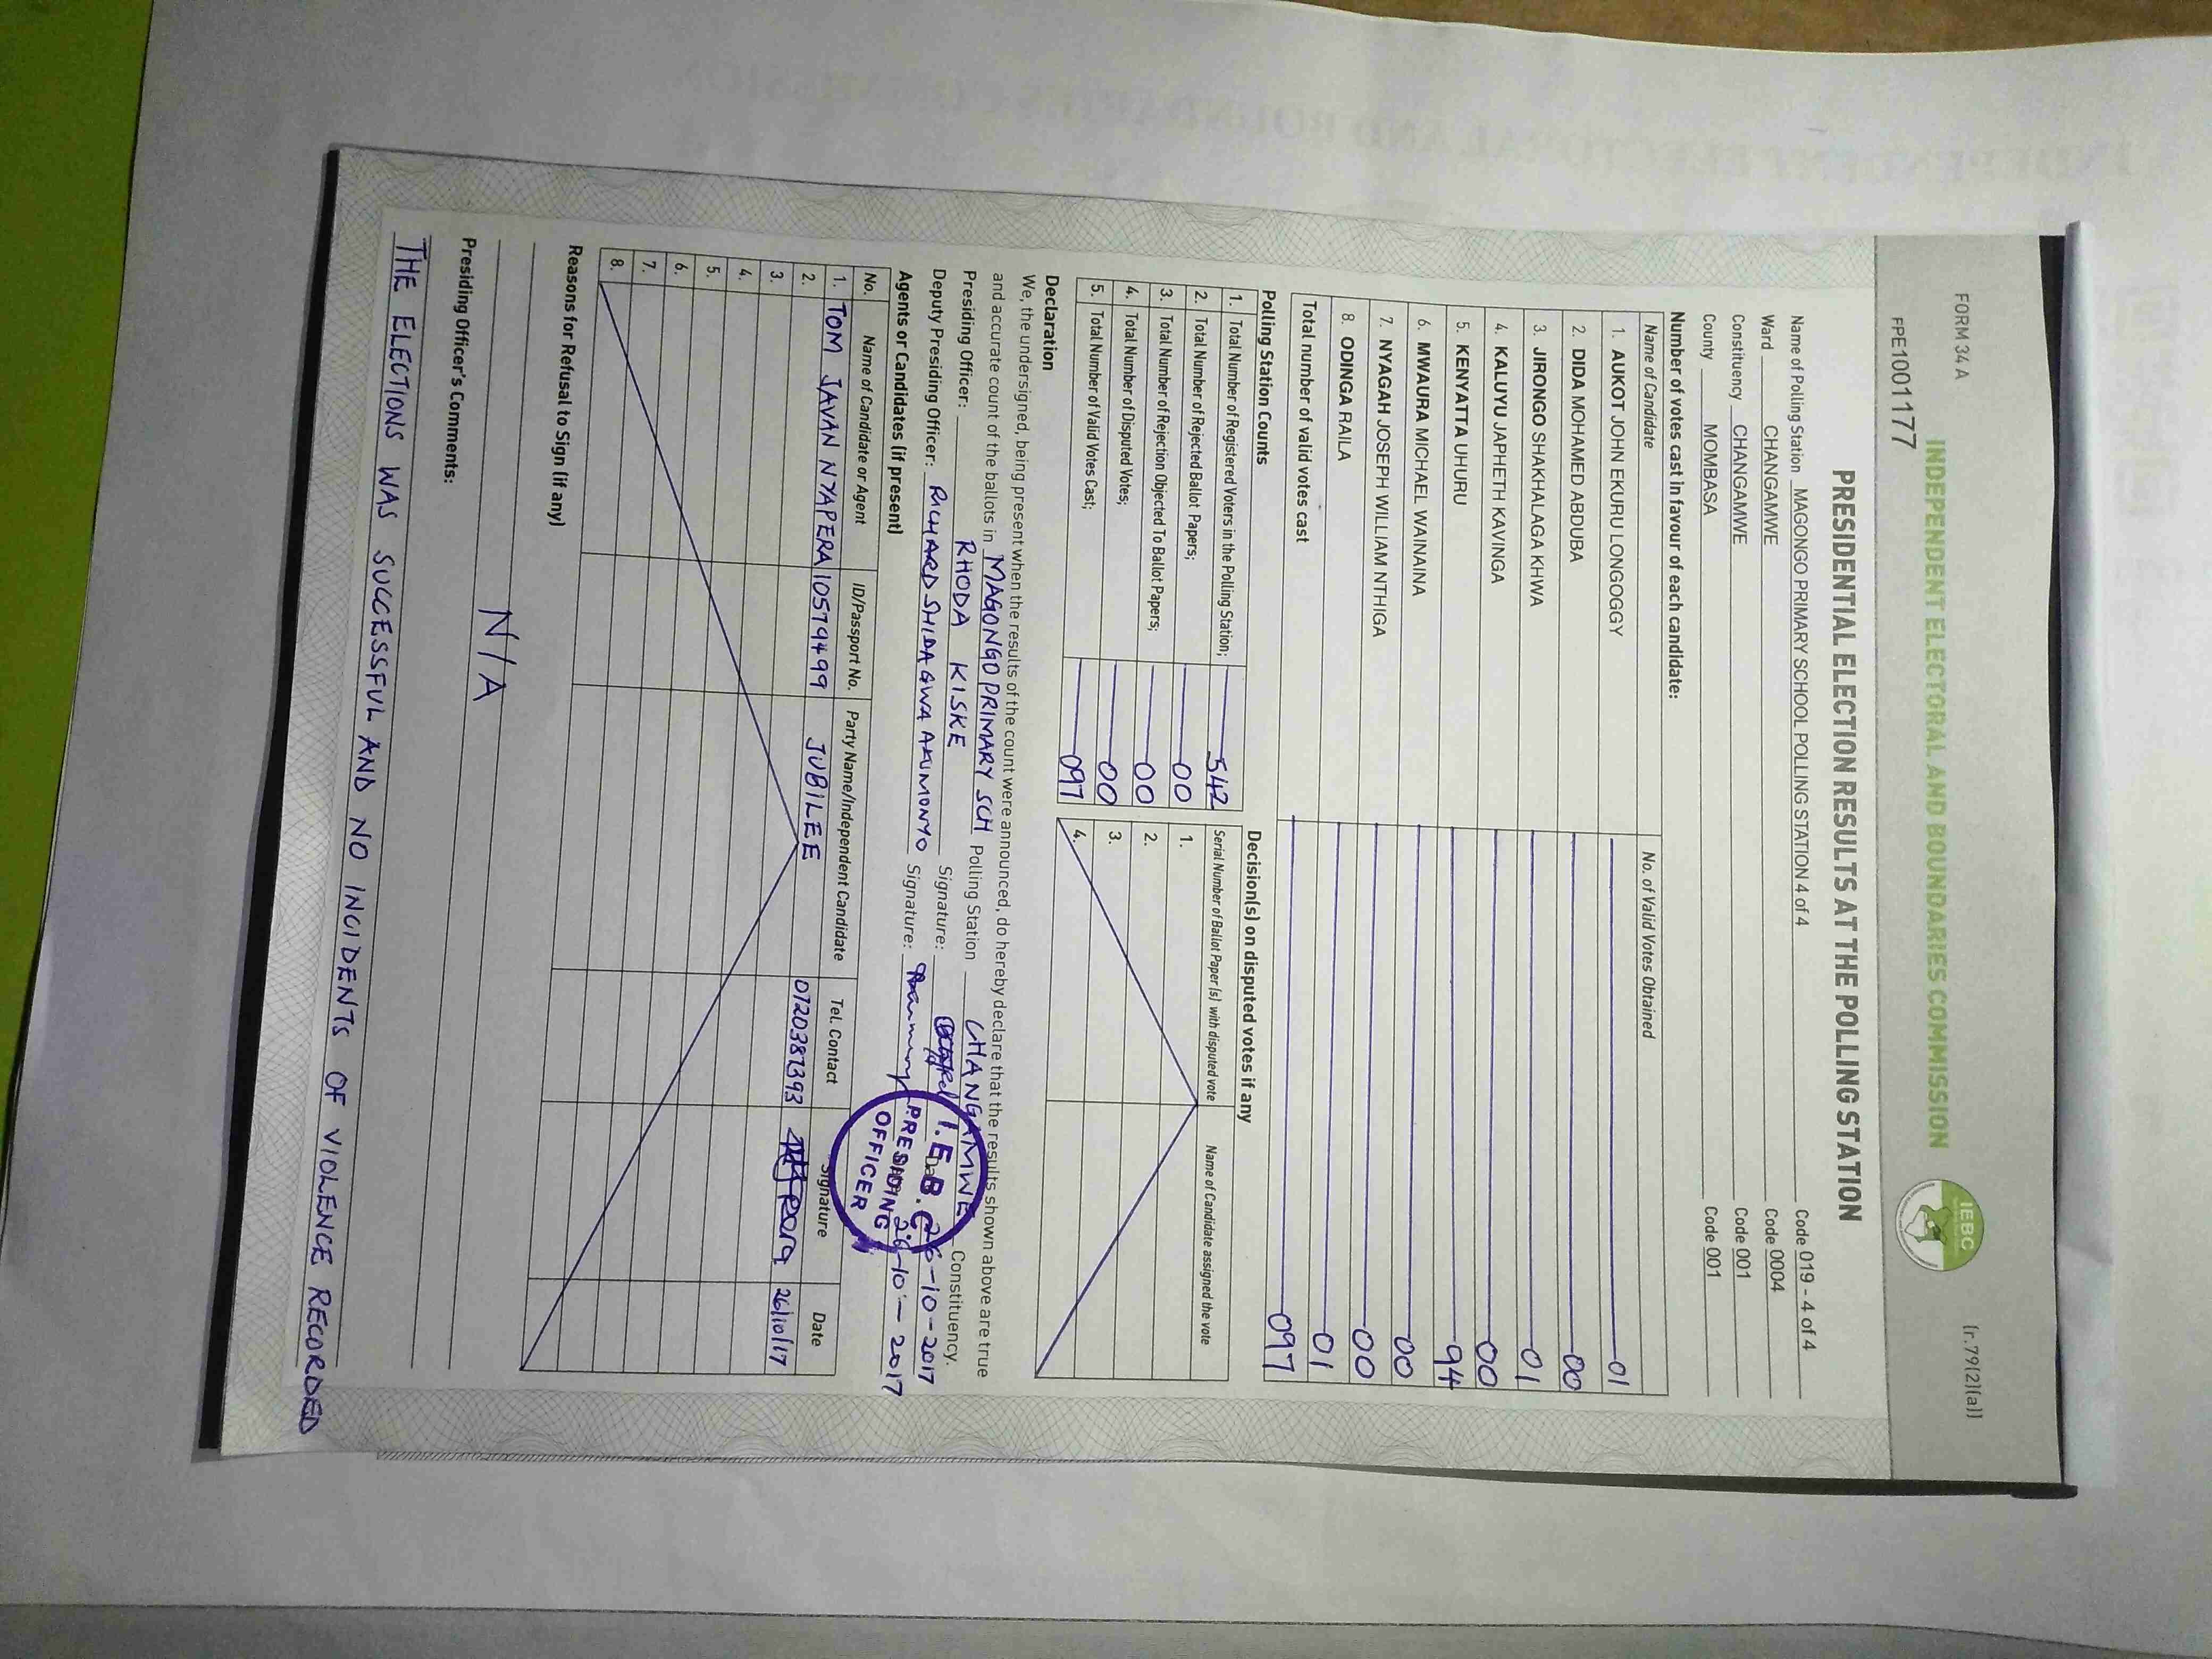 FORM 34 A
(r.79(2)(a))
INDEPENDENT ELECTORAL AND BOUNDARIES COMMISSION
IEBC
FPE1001177
PRESIDENTIAL ELECTION RESULTS AT THE POLLING STATION
Name of Polling Station MAGONGO PRIMARY SCHOOL POLLING STATION 4 of 4 Code 019 - 4 of 4
Ward CHANGAMWE Code 0004
Constituency CHANGAMWE Code 001
County MOMBASA Code 001
Number of votes cast in favour of each candidate:
Name of Candidate No. of Valid Votes Obtained
1. AUKOT JOHN EKURU LONGOGGY 01
2. DIDA MOHAMED ABDUBA 00
3. JIRONGO SHAKHALAGA KHWA 01
4. KALUYU JAPHETH KAVINGA 00
5. KENYATTA UHURU 94
6. MWAURA MICHAEL WAINAINA 00
7. NYAGAH JOSEPH WILLIAM NTHIGA 00
8. ODINGA RAILA 01
Total number of valid votes cast 097
Polling Station Counts
1. Total Number of Registered Voters in the Polling Station; 542
2. Total Number of Rejected Ballot Papers; 00
3. Total Number of Rejection Objected To Ballot Papers; 00
4. Total Number of Disputed Votes; 00
5. Total Number of Valid Votes Cast; 097
Decision(s) on disputed votes if any
Serial Number of Ballot Paper (s) with disputed vote Name of Candidate assigned the vote
1.
2.
3.
4.
Declaration
We, the undersigned, being present when the results of the count were announced, do hereby declare that the results shown above are true
and accurate count of the ballots in MAGONGO PRIMARY SCH Polling Station CHANGAMWE Constituency.
Presiding Officer: RHODA KISKE Signature: 26-10-2017
Deputy Presiding Officer: RICHARD SHIDAGWA AKUMONYO Signature: 26-10-2017
I.E.B.C.
PRESIDING
OFFICER
Agents or Candidates (if present)
No. Name of Candidate or Agent ID/Passport No. Party Name/Independent Candidate Tel. Contact Signature Date
1. TOM JAVAN NYAPERA 10579499 JUBILEE 0720387393 26/10/17
2.
3.
4.
5.
6.
7.
8.
Reasons for Refusal to Sign (if any)
N/A
Presiding Officer's Comments:
THE ELECTIONS WAS SUCCESSFUL AND NO INCIDENTS OF VIOLENCE RECORDED